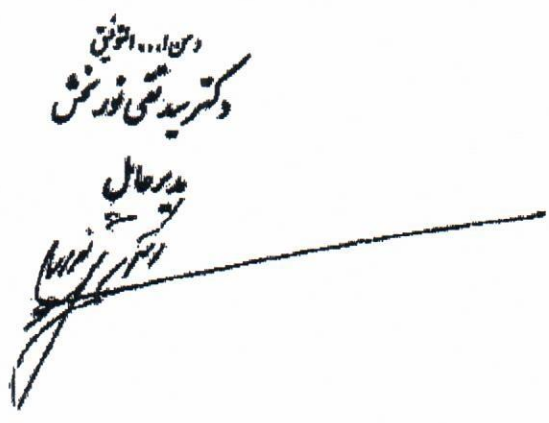 ومن ا... التوفیق
دکتر سید تقی نوربخش
مدیرعامل